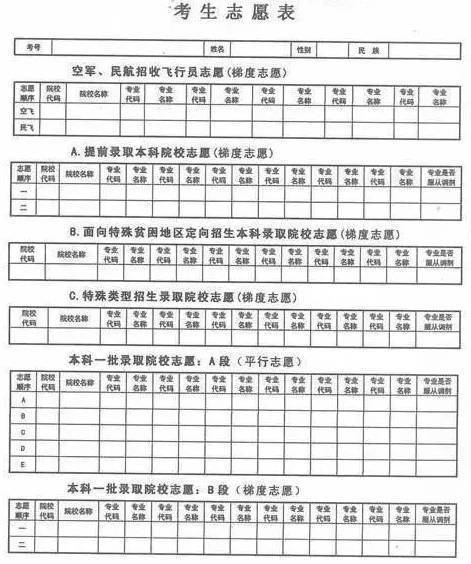 考生志愿表
考号 姓名 性别 民族
空军、民航招收飞行员志愿(梯度志愿)
志愿顺序 院校代码 院校名称 专业代码 专业名称 专业代码 专业名称 专业代码 专业名称 专业代码 专业名称
空飞
民飞
A.提前录取本科院校志愿(梯度志愿)
志愿顺序 院校代码 院校名称 专业代码 专业名称 专业代码 专业名称 专业代码 专业名称 专业代码 专业名称 专业代码 专业名称 专业代码 专业名称 专业是否服从调剂
一
二
B.面向特殊贫困地区定向招生本科录取院校志愿(梯度志愿)
院校代码 院校名称 专业代码 专业名称 专业代码 专业名称 专业代码 专业名称 专业代码 专业名称 专业代码 专业名称 专业代码 专业名称 专业是否服从调剂
C.特殊类型招生录取院校志愿(梯度志愿)
院校代码 院校名称 专业代码 专业名称 专业代码 专业名称 专业代码 专业名称 专业代码 专业名称 专业代码 专业名称 专业代码 专业名称 专业是否服从调剂
本科一批录取院校志愿：A段（平行志愿）
志愿顺序 院校代码 院校名称 专业代码 专业名称 专业代码 专业名称 专业代码 专业名称 专业代码 专业名称 专业代码 专业名称 专业代码 专业名称 专业是否服从调剂
A
B
C
D
E
本科一批录取院校志愿：B段（梯度志愿）
志愿顺序 院校代码 院校名称 专业代码 专业名称 专业代码 专业名称 专业代码 专业名称 专业代码 专业名称 专业代码 专业名称 专业代码 专业名称 专业是否服从调剂
一
二